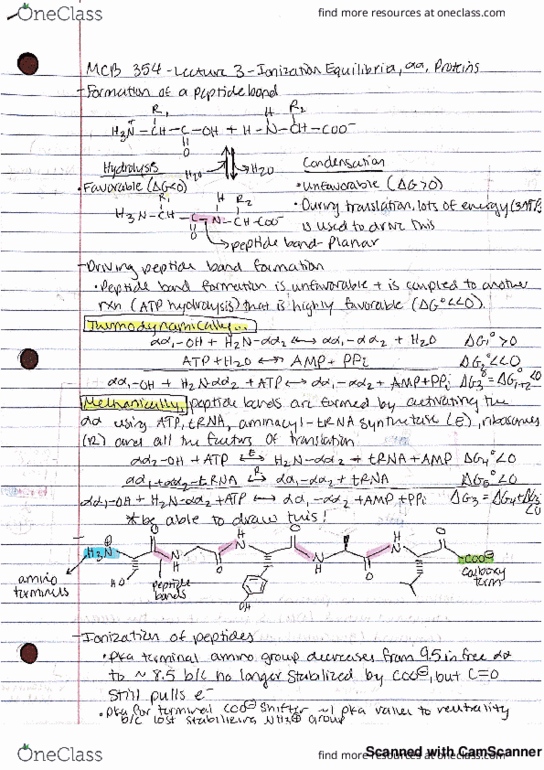 OneClass
find more resources at oneclass.com
MCB 354 - Lecture 3 - Ionization Equilibria, aa, Proteins
- Formation of a peptide bond
R₁ H R₂
H₃N⁺-CH-C-OH + H-N-CH-COO⁻
O
Hydrolysis H₂O H₂O Condensation
• Favorable (ΔG<0) • Unfavorable (ΔG>0)
R₁ H R₂ • During translation, lots of energy (3ATP)
H₃N-CH C-N-CH-COO⁻ is used to drive this
O
peptide bond - planar
- Driving peptide bond formation
• Peptide bond formation is unfavorable + is coupled to another
rxn (ATP hydrolysis) that is highly favorable (ΔG°<<0).
Thermodynamically...
aa₁-OH + H₂N-aa₂ ↔ aa₁-aa₂ + H₂O ΔG₁°>0
ATP + H₂O ↔ AMP + PPi ΔG₂°<<0
aa₁-OH + H₂N-aa₂ + ATP ↔ aa₁-aa₂ + AMP + PPi ΔG₃°=ΔG₁₊₂°<0
Mechanically, peptide bonds are formed by activating the
aa using ATP, tRNA, aminacyl-tRNA synthetase (E), ribosomes
(R) and all the factors of translation
aa₂-OH + ATP ⇌ H₂N-aa₂ + tRNA + AMP ΔG₄°<0
E
aa₁ + aa₂-tRNA ⇌ aa₁-aa₂ + tRNA ΔG₅°<0
R
aa₁-OH + H₂N-aa₂ + ATP ↔ aa₁-aa₂ + AMP + PPi
* be able to draw this!
H₃N⁺ O H N O H N O COO⁻
N H O N H O
HO
OH
amino
terminus
peptide
bonds
carboxy
term
- Ionization of peptides
• pka terminal amino group decreases from 9.5 in free aa
to ~ 8.5 b/c no longer stabilized by COO⁻, but C=O
still pulls e⁻
• pka for terminal COO⁻ shifts ~1 pka value to neutrality
b/c lost stabilizing NH₃⁺ group
OneClass
find more resources at oneclass.com
Scanned with CamScanner